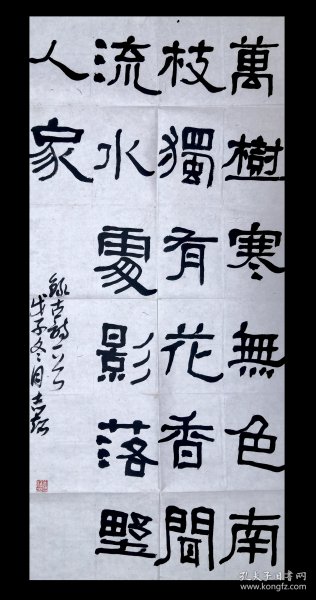 萬樹寒無色南
枝獨有花香聞
流水處影落野
人家
錄古詩一首
戊子冬月
孔夫子旧书网
www.kongfz.com